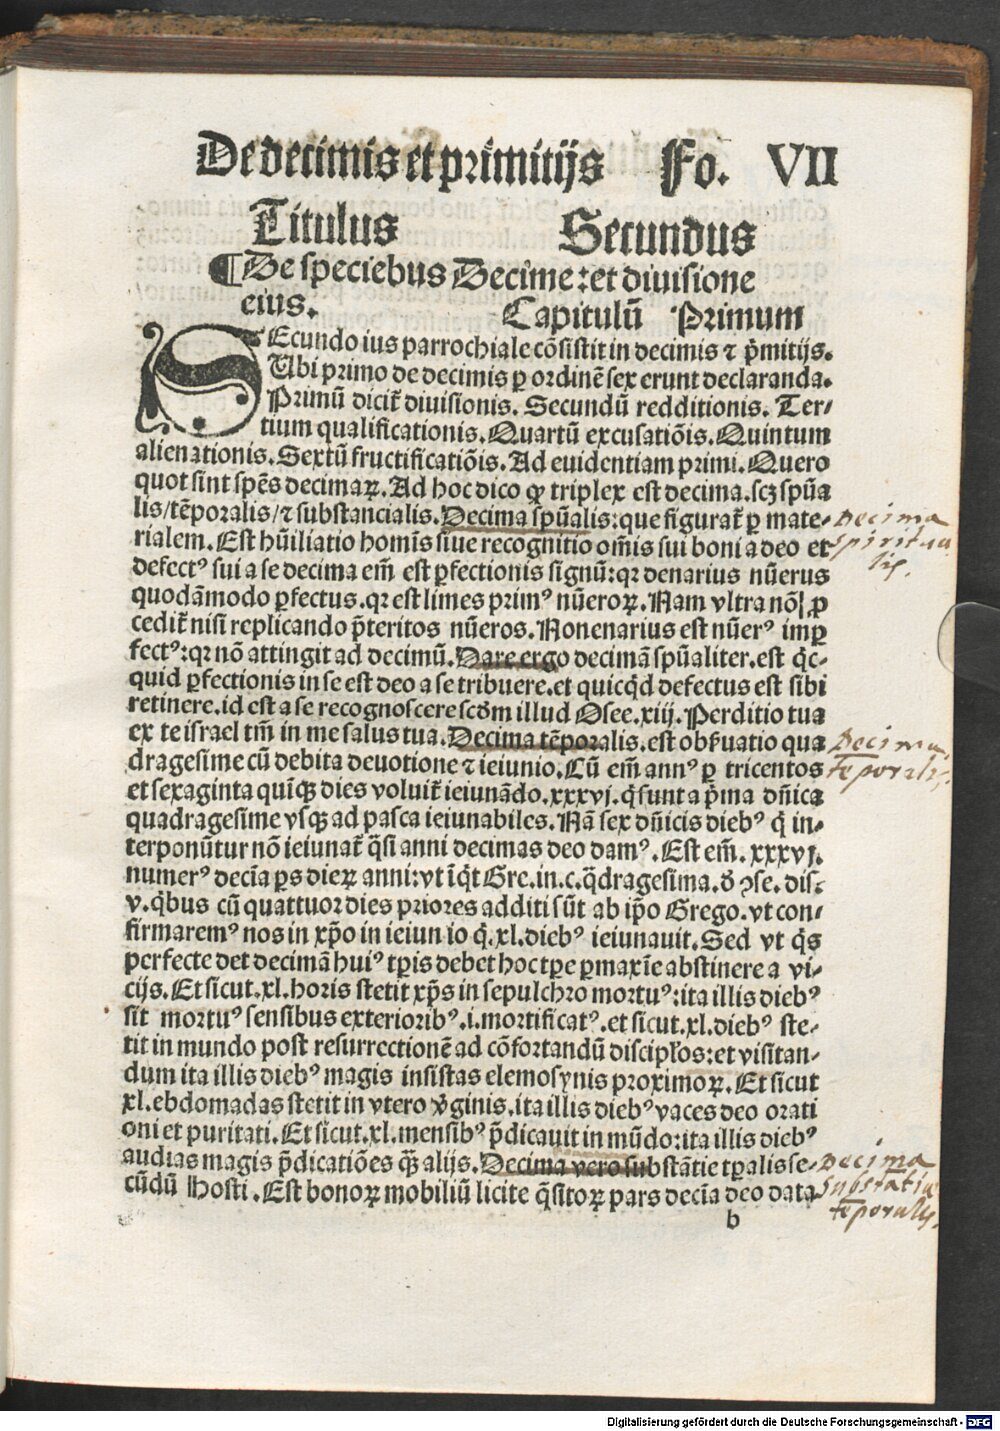 De decimis et primitijs Fo. VII
Titulus Secundus
¶ De speciebus Decime: et diuisione
eius. Capitulū Primum
SEcundo ius parrochiale cōsistit in decimis ⁊ p̄mitijs.
Ubi primo de decimis ꝑ ordinē sex erunt declaranda.
Primū dicit̄ diuisionis. Secundū redditionis. Ter-
tium qualificationis. Quartū excusatiōis. Quintum
alienationis. Sextū fructificatiōis. Ad euidentiam primi. Quero
quot sint spēs decimaꝝ. Ad hoc dico ꝙ triplex est decima. scꝫ spūa
lis/tēporalis/⁊ substancialis. Decima spūalis: que figurat̄ ꝑ mate-
rialem. Est hūiliatio homīs siue recognitio om̄is sui boni a deo et
defectꝰ sui a se decima em̄ est ꝑfectionis signū: qꝛ denarius nūerus
quodāmodo ꝑfectus. qꝛ est limes primꝰ nūeroꝝ. Nam vltra nō ꝓ
cedit̄ nisi replicando p̄teritos nūeros. Nonenarius est nūerꝰ imꝑ
fectꝰ: qꝛ nō attingit ad decimū. Dare ergo decimā spūaliter. est q̇c-
quid ꝑfectionis in se est deo a se tribuere. et quicq̇d defectus est sibi
retinere. id est a se recognoscere scđm illud Osee. xiij. Perditio tua
ex te israel tm̄ in me salus tua. Decima tēporalis. est obẜuatio qua
dragesime cū debita deuotione ⁊ ieiunio. Cū em̄ annꝰ ꝑ tricentos
et sexaginta quinqꝫ dies voluit̄ ieiunādo. xxxvj. q̇ sunt a p̄ma dn̄ica
quadragesime vsqꝫ ad pasca ieiunabiles. Nā sex dn̄icis diebꝰ q̇ in-
terponūtur nō ieiunat̄ q̈si anni decimas deo damꝰ. Est em̄. xxxvj.
numerꝰ decīa ꝑs dieꝝ anni: vt īq̇t Gre. in. c. q̈dragesima. đ ꝯse. dis.
v. q̇bus cū quattuor dies priores additi sūt ab ip̄o Grego. vt con-
firmaremꝰ nos in xp̄o in ieiunio q̇. xl. diebꝰ ieiunauit. Sed vt q̇s
perfecte det decimā huiꝰ tꝑis debet hoc tꝑe ꝑmaxīe abstinere a vi-
cijs. Et sicut. xl. horis stetit xp̄s in sepulchro mortuꝰ: ita illis diebꝰ
sit mortuꝰ sensibus exterioribꝰ. i. mortificatꝰ. et sicut. xl. diebꝰ ste-
tit in mundo post resurrectionē ad cōfortandū discipłos: et visitan-
dum ita illis diebꝰ magis insistas elemosynis proximoꝝ. Et sicut
xl. ebdomadas stetit in vtero v̄ginis. ita illis diebꝰ vaces deo orati
oni et puritati. Et sicut. xl. mensibꝰ p̄dicauit in mūdo: ita illis diebꝰ
audias magis p̄dicatiōes qꝫ̄ alijs. Decima vero substātie tꝑalis se-
cūdū Hosti. Est bonoꝝ mobiliū licite q̈sitoꝝ pars decīa deo data
b
Decima
spiritua
lis.
Decima
tēporalis,
Decima
substātiæ
tēporalis.
Digitalisierung gefördert durch die Deutsche Forschungsgemeinschaft - DFG